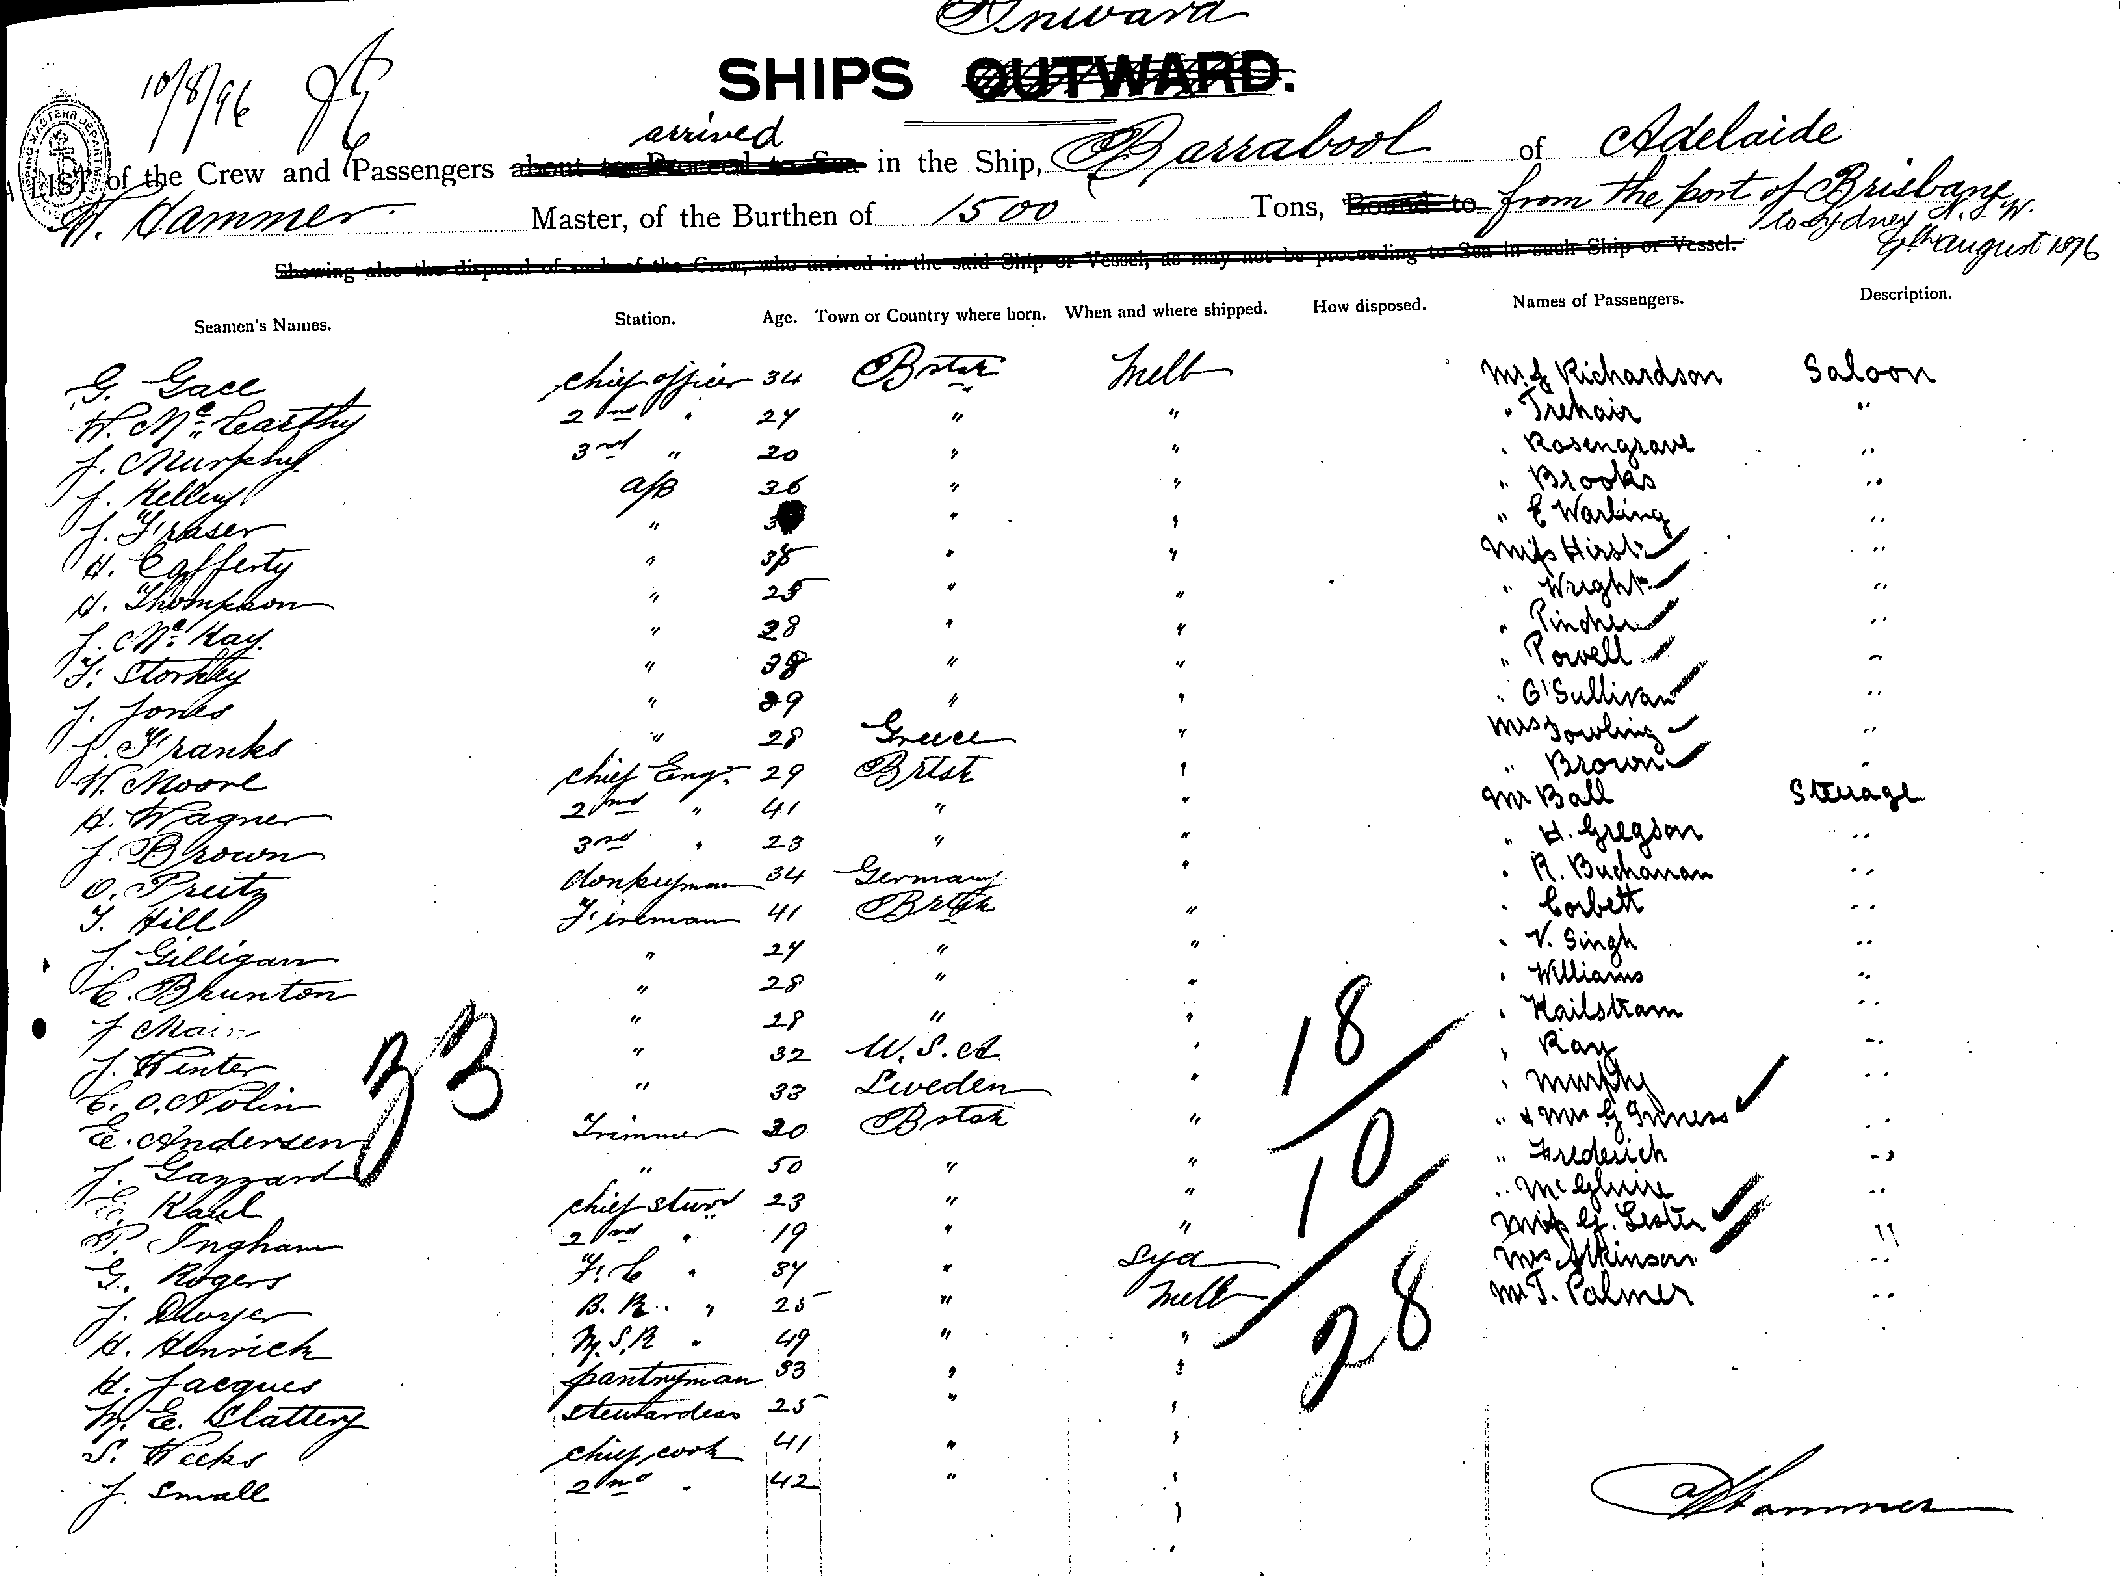 Inward
SHIPS OUTWARD.
10/8/96
arrived
A LIST of the Crew and Passengers about to Proceed to Sea in the Ship, Barrabool of Adelaide
W. Hammer Master, of the Burthen of 1500 Tons, Bound to from the port of Brisbane
to Sydney N. S. W.
9th August 1896
Showing also the disposal of each of the Crew, who arrived in the said Ship or Vessel, as may not be proceeding to Sea in such Ship or Vessel.
Seamen's Names. Station. Age. Town or Country where born. When and where shipped. How disposed. Names of Passengers. Description.
G. Gace chief officer 34 Brtsh Melb Mr J Richardson Saloon
W. Mc Carthy 2nd " 24 " " " Trehair "
J. Murphy 3rd " 20 " " " Rosengrave "
J. Kelley A/B 36 " " " Brooks "
J. Fraser " " " " E Warling "
H. Cafferty " 38 " " Miss Hirst "
H. Thompson " 25 " " " Wright "
J. Mc Kay " 28 " " " Pincher "
F. Storkley " 38 " " " Powell "
J. Jones " 29 " " " O'Sullivan "
J. Franks " 28 Greece " Mrs Dowling "
W. Moore chief Engr 29 Brtsh " " Brown "
H. Wagner 2nd " 41 " " Mr Ball Steerage
J. Brown 3rd " 23 " " " H. Gregson "
O. Preitz donkeyman 34 Germany " " R. Buchanan "
T. Hill Fireman 41 Brtsh " " Corbett "
J. Gilligan " 24 " " " V. Singh "
C. Brunton " 28 " " " Williams "
J Main " 28 " " " Hailstram "
J. Winter " 32 U.S.A " " Ray "
C. O. Nolin " 33 Sweden " " Murphy "
E. Andersen Trimmer 30 Brtsh " " & Mrs G Inness "
J. Gazzard " 50 " " " Frederich "
E. Kaul chief Stwrd 23 " " " McGhuire "
P. Ingham 2nd " 19 " " Miss G. Lester "
G. Rogers F. C " 34 " Syd Mrs Atkinson "
J. Dwyer B. R. " 25 " Melb Mr T. Palmer "
H. Henrich M. S. R " 49 " "
H. Jacques pantryman 33 " "
M. E. Slattery stewardess 25 " "
S. Weeks chief cook 41 " "
J. Small 2nd " 42 " "
33
18
10
28
W Hammer